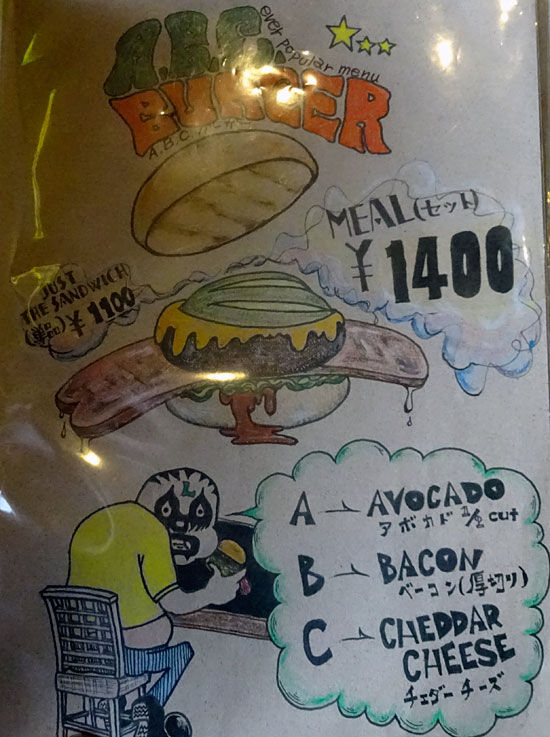 A.B.C.
ever popular menu
BURGER
A.B.C バーガー
MEAL(セット)
¥1400
JUST
THE SANDWICH
(単品) ¥1100
L
A→AVOCADO
アボカド 1/2 cut
B→BACON
ベーコン(厚切り)
C→CHEDDAR
CHEESE
チェダーチーズ